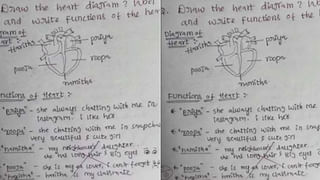 Draw the heart diagram? 
and write functions of the
Diagram of
Heart :-
Haritha
priya
roopa
pooja
namitha
Functions of Heart :-
"priya" - she always chatting with me in
instagram. i like her
"roopa" - she chatting with me in snapchat
very beautiful & cute girl
"namitha" - my neighbour's daughter.
she has long hair & big eyes
"pooja" - she is my ex lover, i can't forget
"haritha" is my classmate
Draw the heart diagram?
and write functions of the
Diagram of
Heart :-
Haritha
priya
roopa
pooja
namitha
Functions of Heart :-
"priya" - she always chatting with me in
instagram. i like her
"roopa" - she chatting with me in snapchat
very beautiful & cute girl
"namitha" - my neighbour's daughter.
she has long hair & big eyes
"pooja" - she is my ex lover, i can't forget
"haritha" is my classmate